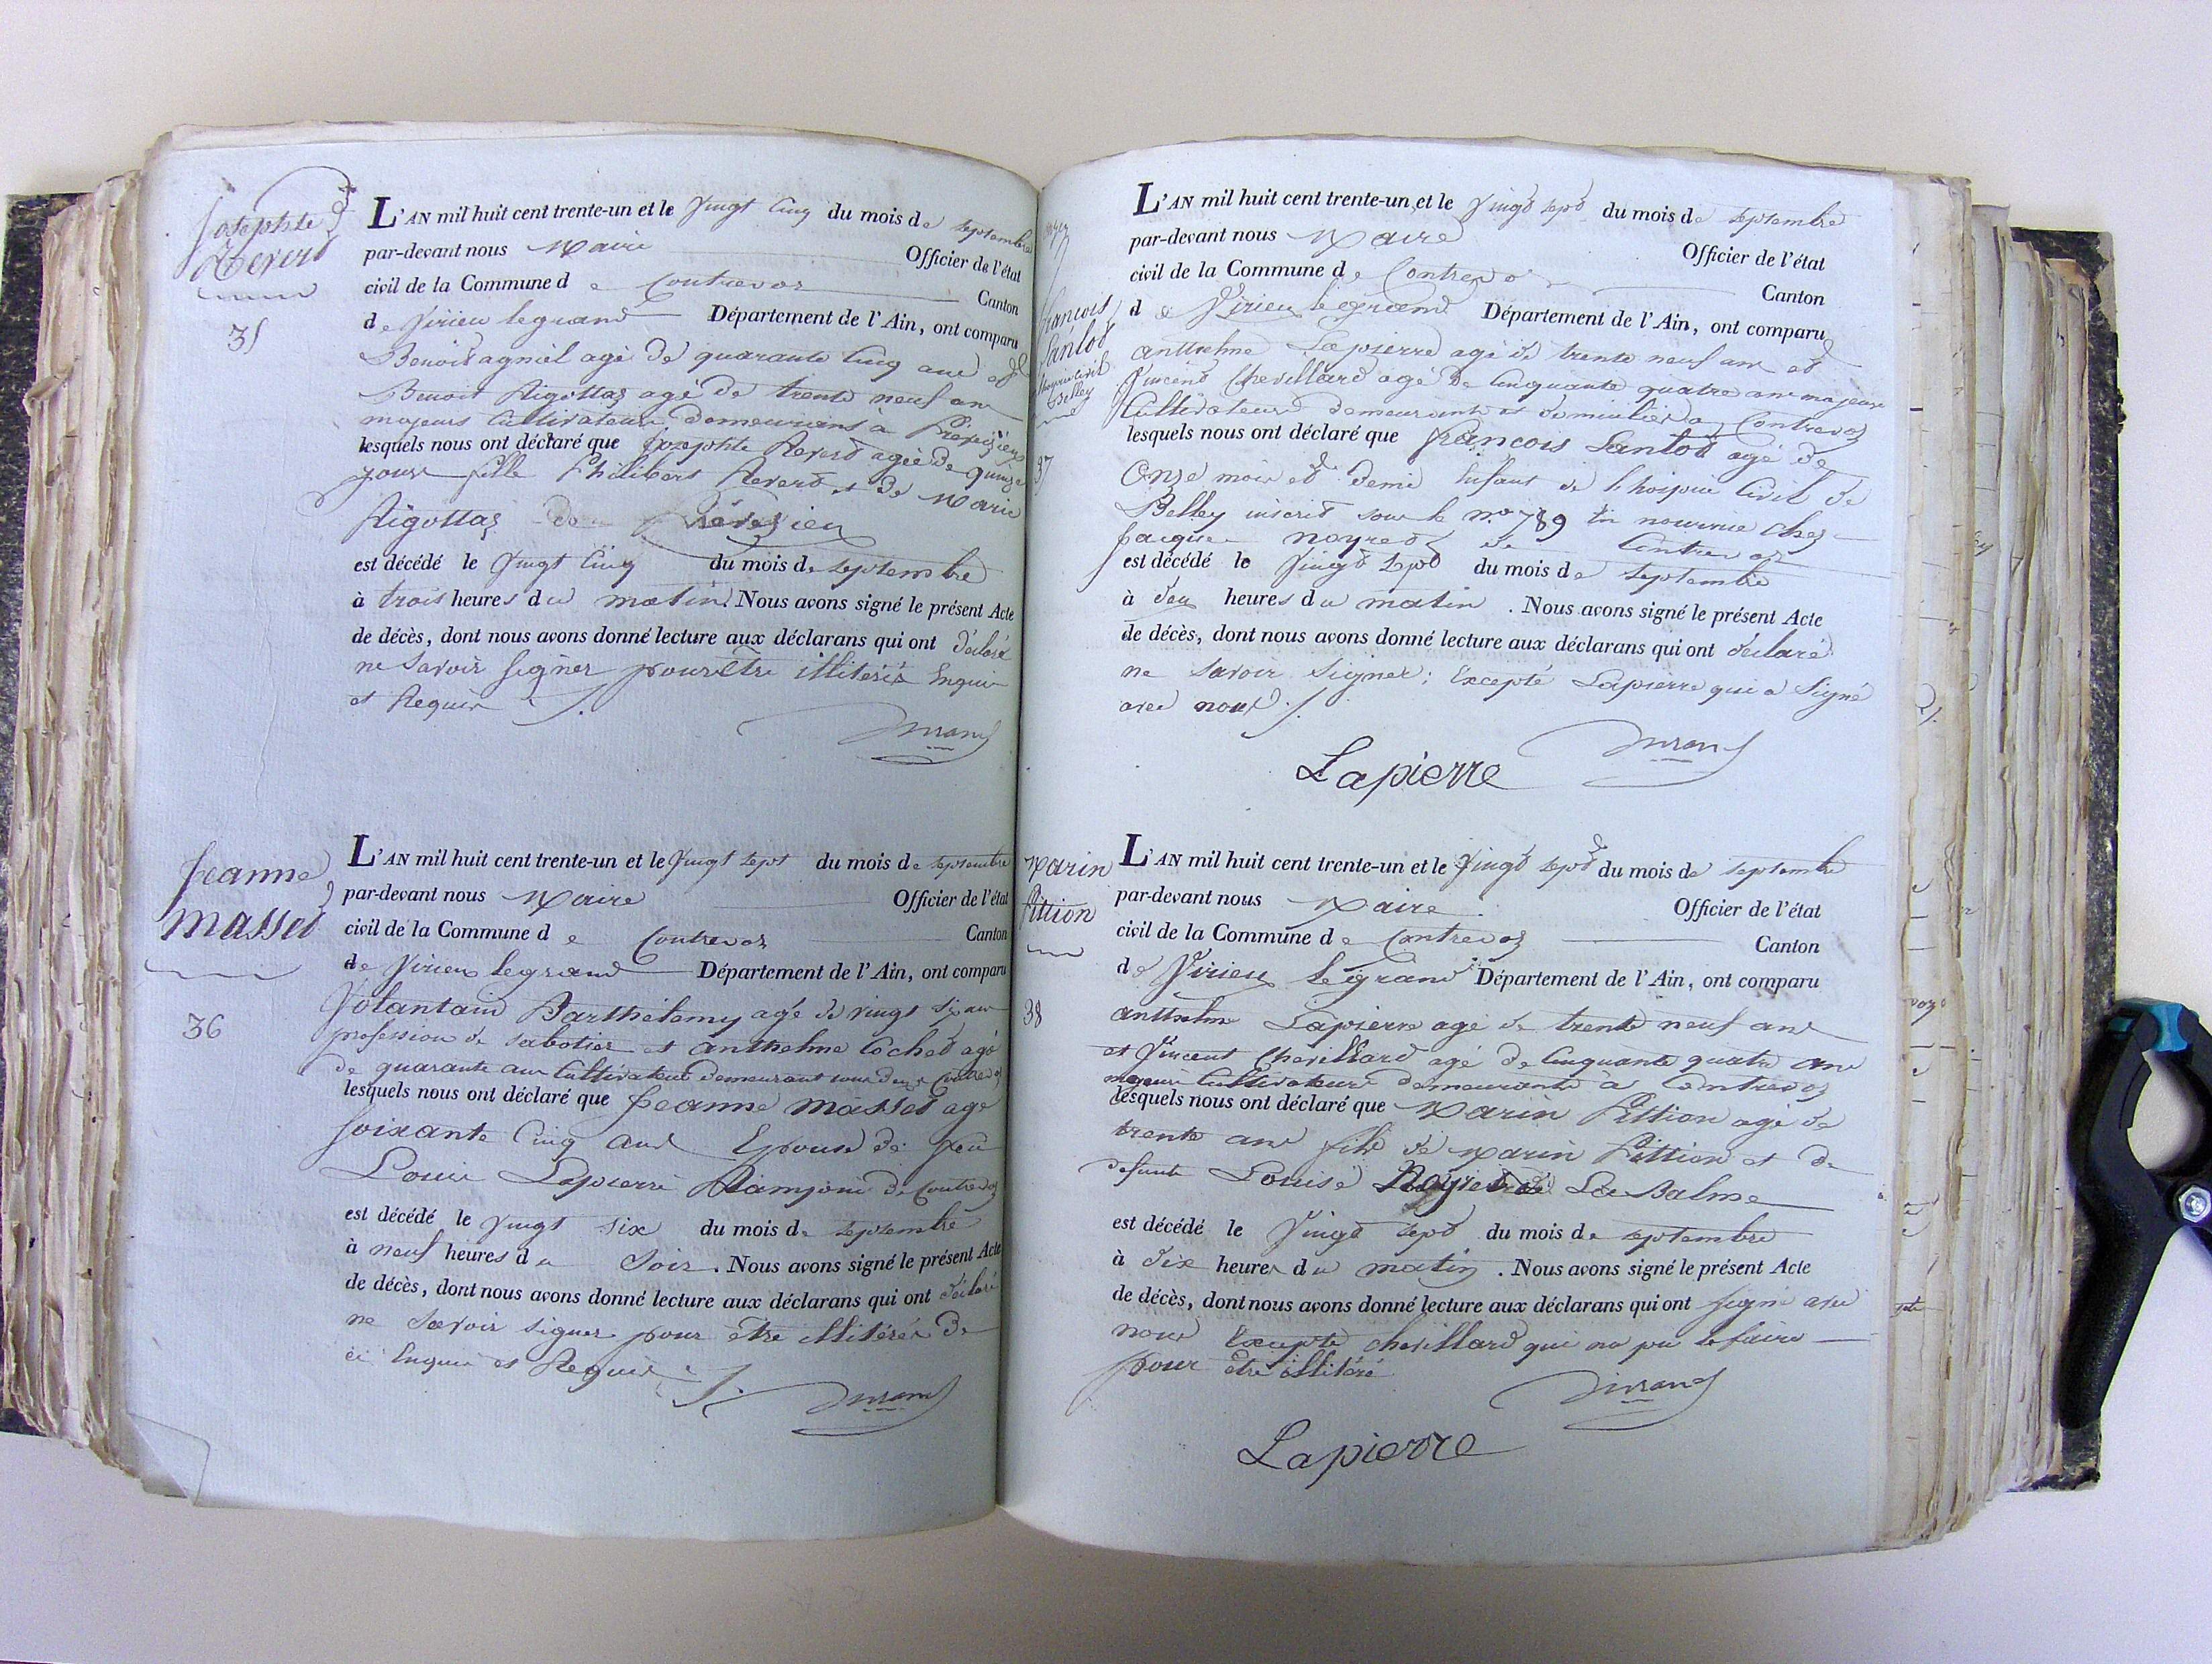 Josephte
Reverd
35
L'AN mil huit cent trente-un et le Vingt Cinq du mois de septembre
par-devant nous Maire Officier de l'état
civil de la Commune de Contrevoz Canton
de Virieu legrand Département de l'Ain, ont comparu
Benoit agniel agé de quarante Cinq ans et
Benoit Rigottaz agé de trente neuf ans
majeurs Cultivateurs demeurans à Prévezieu
lesquels nous ont déclaré que Josephte Reverd agée de quinze
jours fille Philibert Reverd et de Marie
Rigottaz de Prévezieu
est décédé le Vingt Cinq du mois de septembre
à trois heures du matin. Nous avons signé le présent Acte
de décès, dont nous avons donné lecture aux déclarans qui ont déclaré
ne savoir signer pour être illitérés Enquis
et Requis ./.
Durand
Jeanne
masset
36
L'AN mil huit cent trente-un et le Vingt sept du mois de septembre
par-devant nous Maire Officier de l'état
civil de la Commune de Contrevoz Canton
de Virieu legrand Département de l'Ain, ont comparu
Volantain Barthelemy agé de vingt six ans
profession de sabotier et anthelme Cochet agé
de quarante ans Cultivateur demeurant tous deux Contrevoz
lesquels nous ont déclaré que Jeanne masset age
soixante Cinq ans Epouse de feu
Louis Lapierre de Contrevoz
est décédé le Vingt six du mois de septembre
à neuf heures du soir. Nous avons signé le présent Acte
de décès, dont nous avons donné lecture aux déclarans qui ont déclaré
ne savoir signer pour être illitérés de
ci Enquis et Requis ./.
Durand
François
Santod
hospice Civil
Belley
37
L'AN mil huit cent trente-un et le Vingt sept du mois de septembre
par-devant nous Maire Officier de l'état
civil de la Commune de Contrevoz Canton
de Virieu legrand Département de l'Ain, ont comparu
anthelme Lapierre agé de trente neuf ans et
Vincent Chevillard agé de Cinquante quatre ans majeurs
Cultivateurs demeurants et domiciliés a Contrevoz
lesquels nous ont déclaré que François Santod agé de
Onze mois et demi Enfant de l'hospice Civil de
Belley inscrit sous le n.o 789 En nourrice chez
jacques noyret de Contrevoz
est décédé le Vingt sept du mois de septembre
à deux heures du matin. Nous avons signé le présent Acte
de décès, dont nous avons donné lecture aux déclarans qui ont déclaré
ne savoir signer; Excepté Lapierre qui a signé
avec nous ./.
Durand
Lapierre
Marin
Pittion
38
L'AN mil huit cent trente-un et le Vingt sept du mois de septembre
par-devant nous Maire Officier de l'état
civil de la Commune de Contrevoz Canton
de Virieu legrand Département de l'Ain, ont comparu
anthelme Lapierre agé de trente neuf ans
et Vincent Chevillard agé de Cinquante quatre ans
majeurs Cultivateurs demeurants à Contrevoz
lesquels nous ont déclaré que Marin Pittion agé de
trente ans fils de marin Pittion et de
defunte Louise Noyret de La Balme
est décédé le Vingt sept du mois de septembre
à dix heures du matin. Nous avons signé le présent Acte
de décès, dont nous avons donné lecture aux déclarans qui ont signé avec
nous Excepté chevillard qui na pu le faire
pour être illitéré
Durand
Lapierre